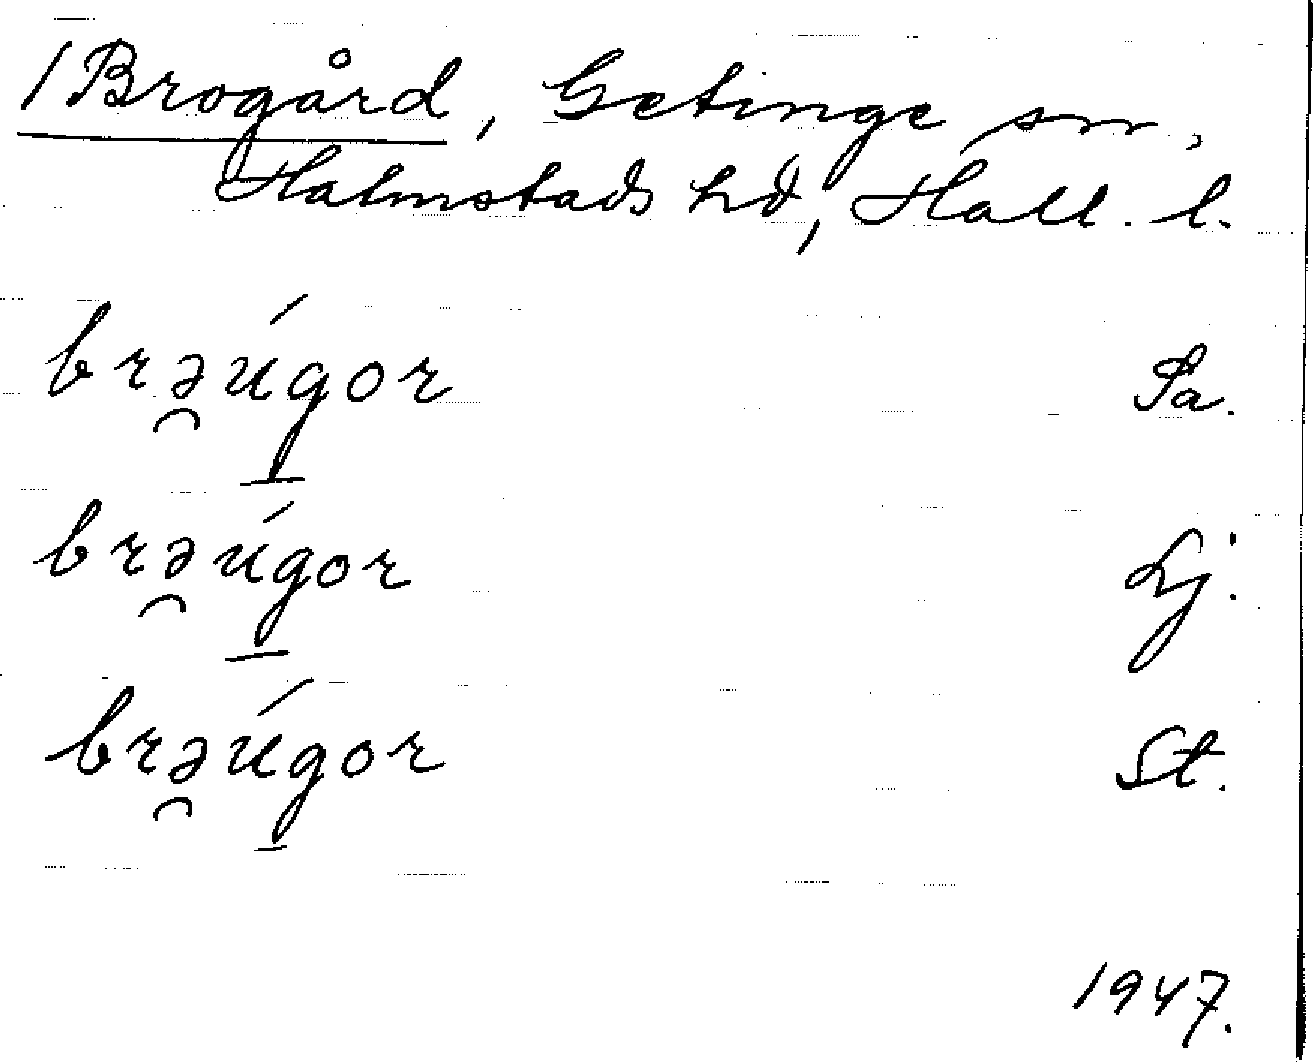 /Brogård, Getinge sn,
Halmstads hd, Hall. l.
brə̯úgor Sa.
brə̯úgor Lj.
brə̯úgor St.
1947.